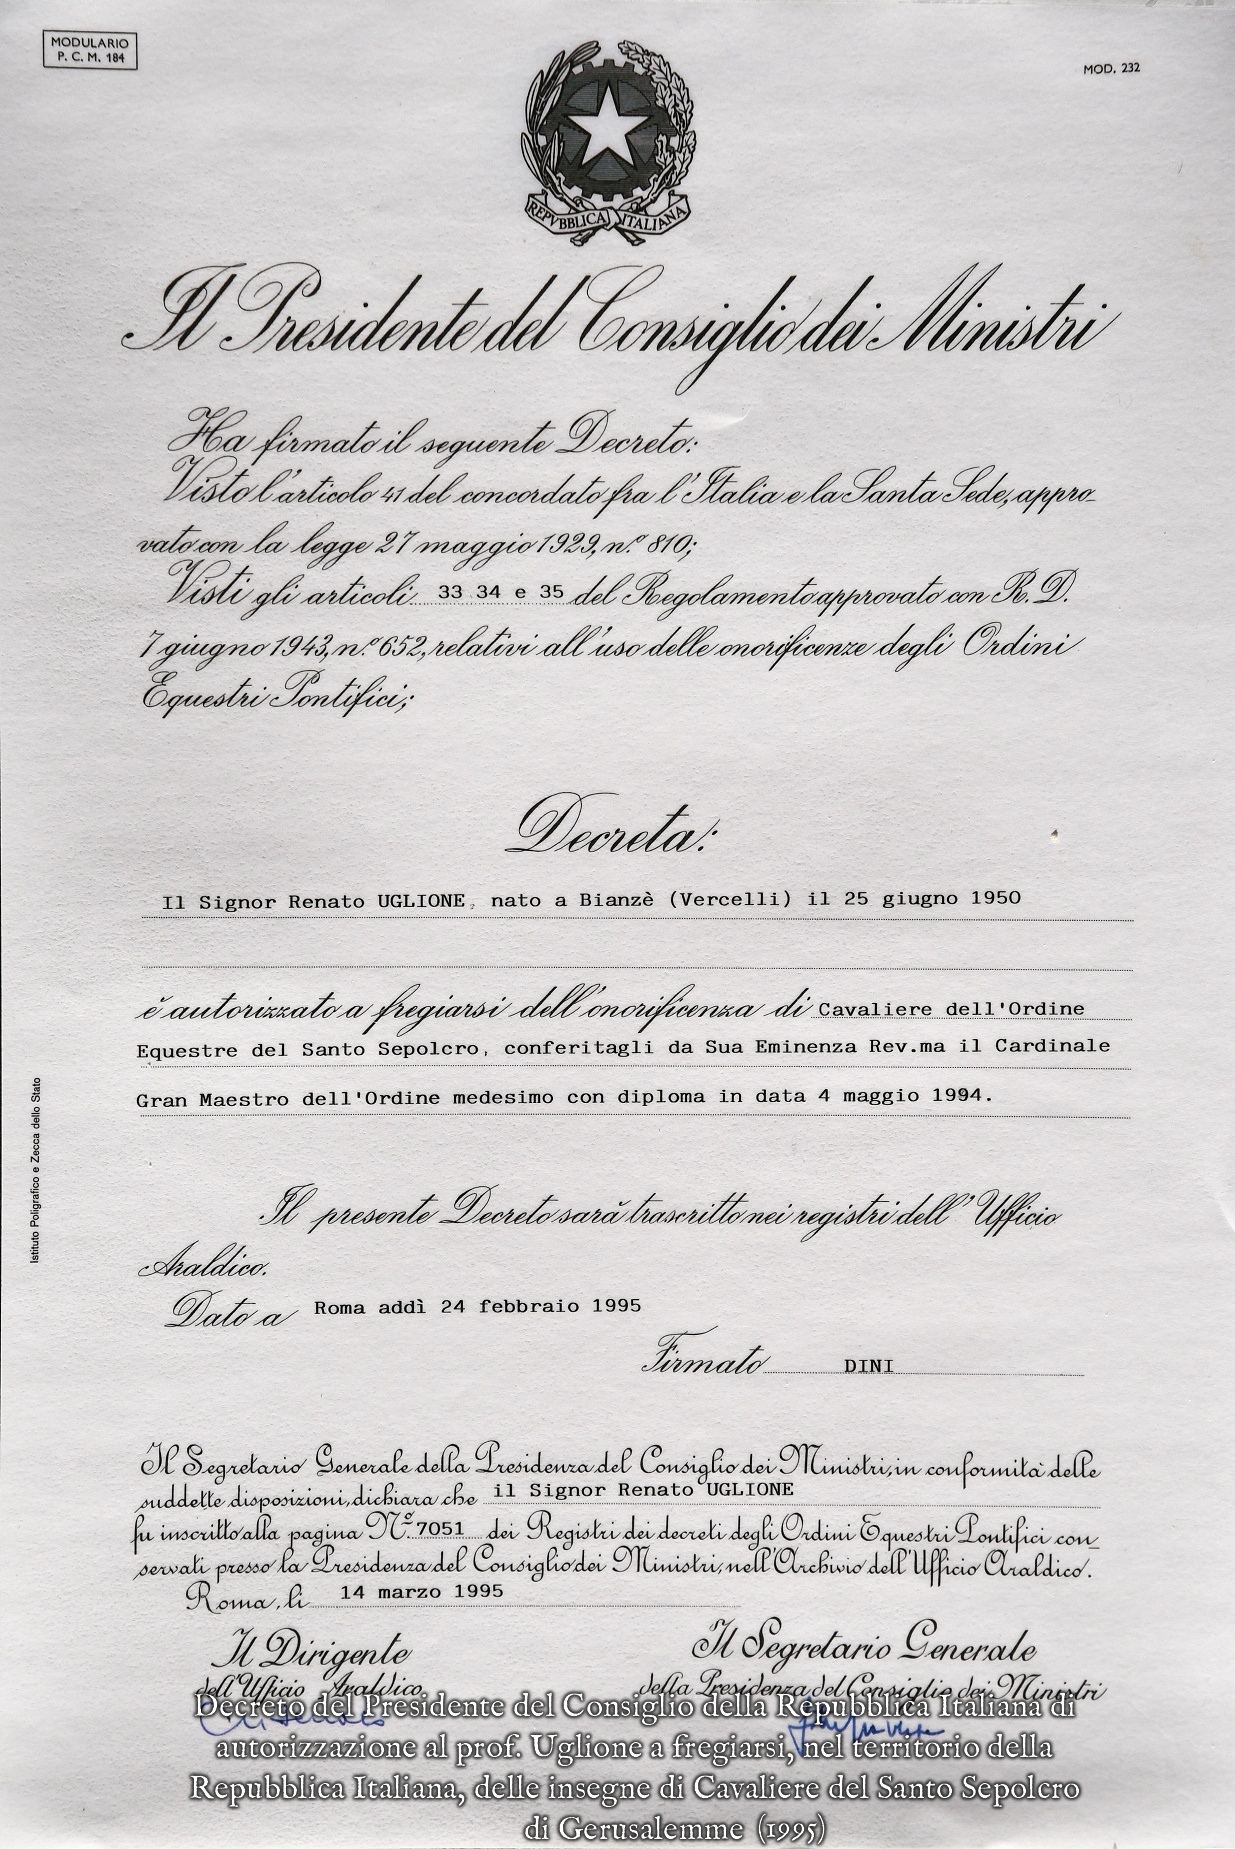 MODULARIO
P. C. M. 184
MOD. 232
REPVBBLICA ITALIANA
Il Presidente del Consiglio dei Ministri
Ha firmato il seguente Decreto:
Visto l'articolo 41 del concordato fra l'Italia e la Santa Sede, appro-
vato con la legge 27 maggio 1929, n.º 810;
Visti gli articoli 33 34 e 35 del Regolamento approvato con R. D.
7 giugno 1943, n.º 652, relativi all'uso delle onorificenze degli Ordini
Equestri Pontifici;
Decreta:
Il Signor Renato UGLIONE, nato a Bianzè (Vercelli) il 25 giugno 1950
è autorizzato a fregiarsi dell'onorificenza di Cavaliere dell'Ordine
Equestre del Santo Sepolcro, conferitagli da Sua Eminenza Rev.ma il Cardinale
Gran Maestro dell'Ordine medesimo con diploma in data 4 maggio 1994.
Istituto Poligrafico e Zecca dello Stato
Il presente Decreto sarà trascritto nei registri dell'Ufficio
Araldico.
Dato a Roma addì 24 febbraio 1995
Firmato DINI
Il Segretario Generale della Presidenza del Consiglio dei Ministri, in conformità delle
suddette disposizioni, dichiara che il Signor Renato UGLIONE
fu inscritto alla pagina Nº 7051 dei Registri dei decreti degli Ordini Equestri Pontifici con-
servati presso la Presidenza del Consiglio dei Ministri, nell'Archivio dell'Ufficio Araldico.
Roma, li 14 marzo 1995
Il Dirigente
dell'Ufficio Araldico
Il Segretario Generale
della Presidenza del Consiglio dei Ministri
Decreto del Presidente del Consiglio della Repubblica Italiana di
autorizzazione al prof. Uglione a fregiarsi, nel territorio della
Repubblica Italiana, delle insegne di Cavaliere del Santo Sepolcro
di Gerusalemme (1995)